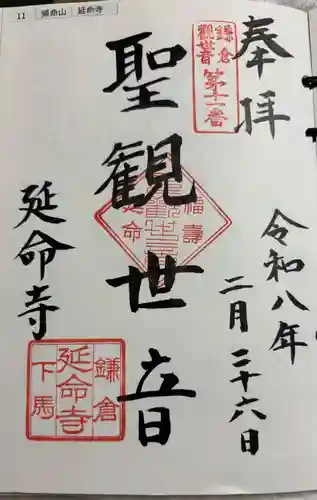 11 帰命山 延命寺
奉拝
鎌倉
観世音
第十一番
令和八年
二月二十六日
聖観世音
福壽
観世音
延命
延命寺
鎌倉
延命寺
下馬